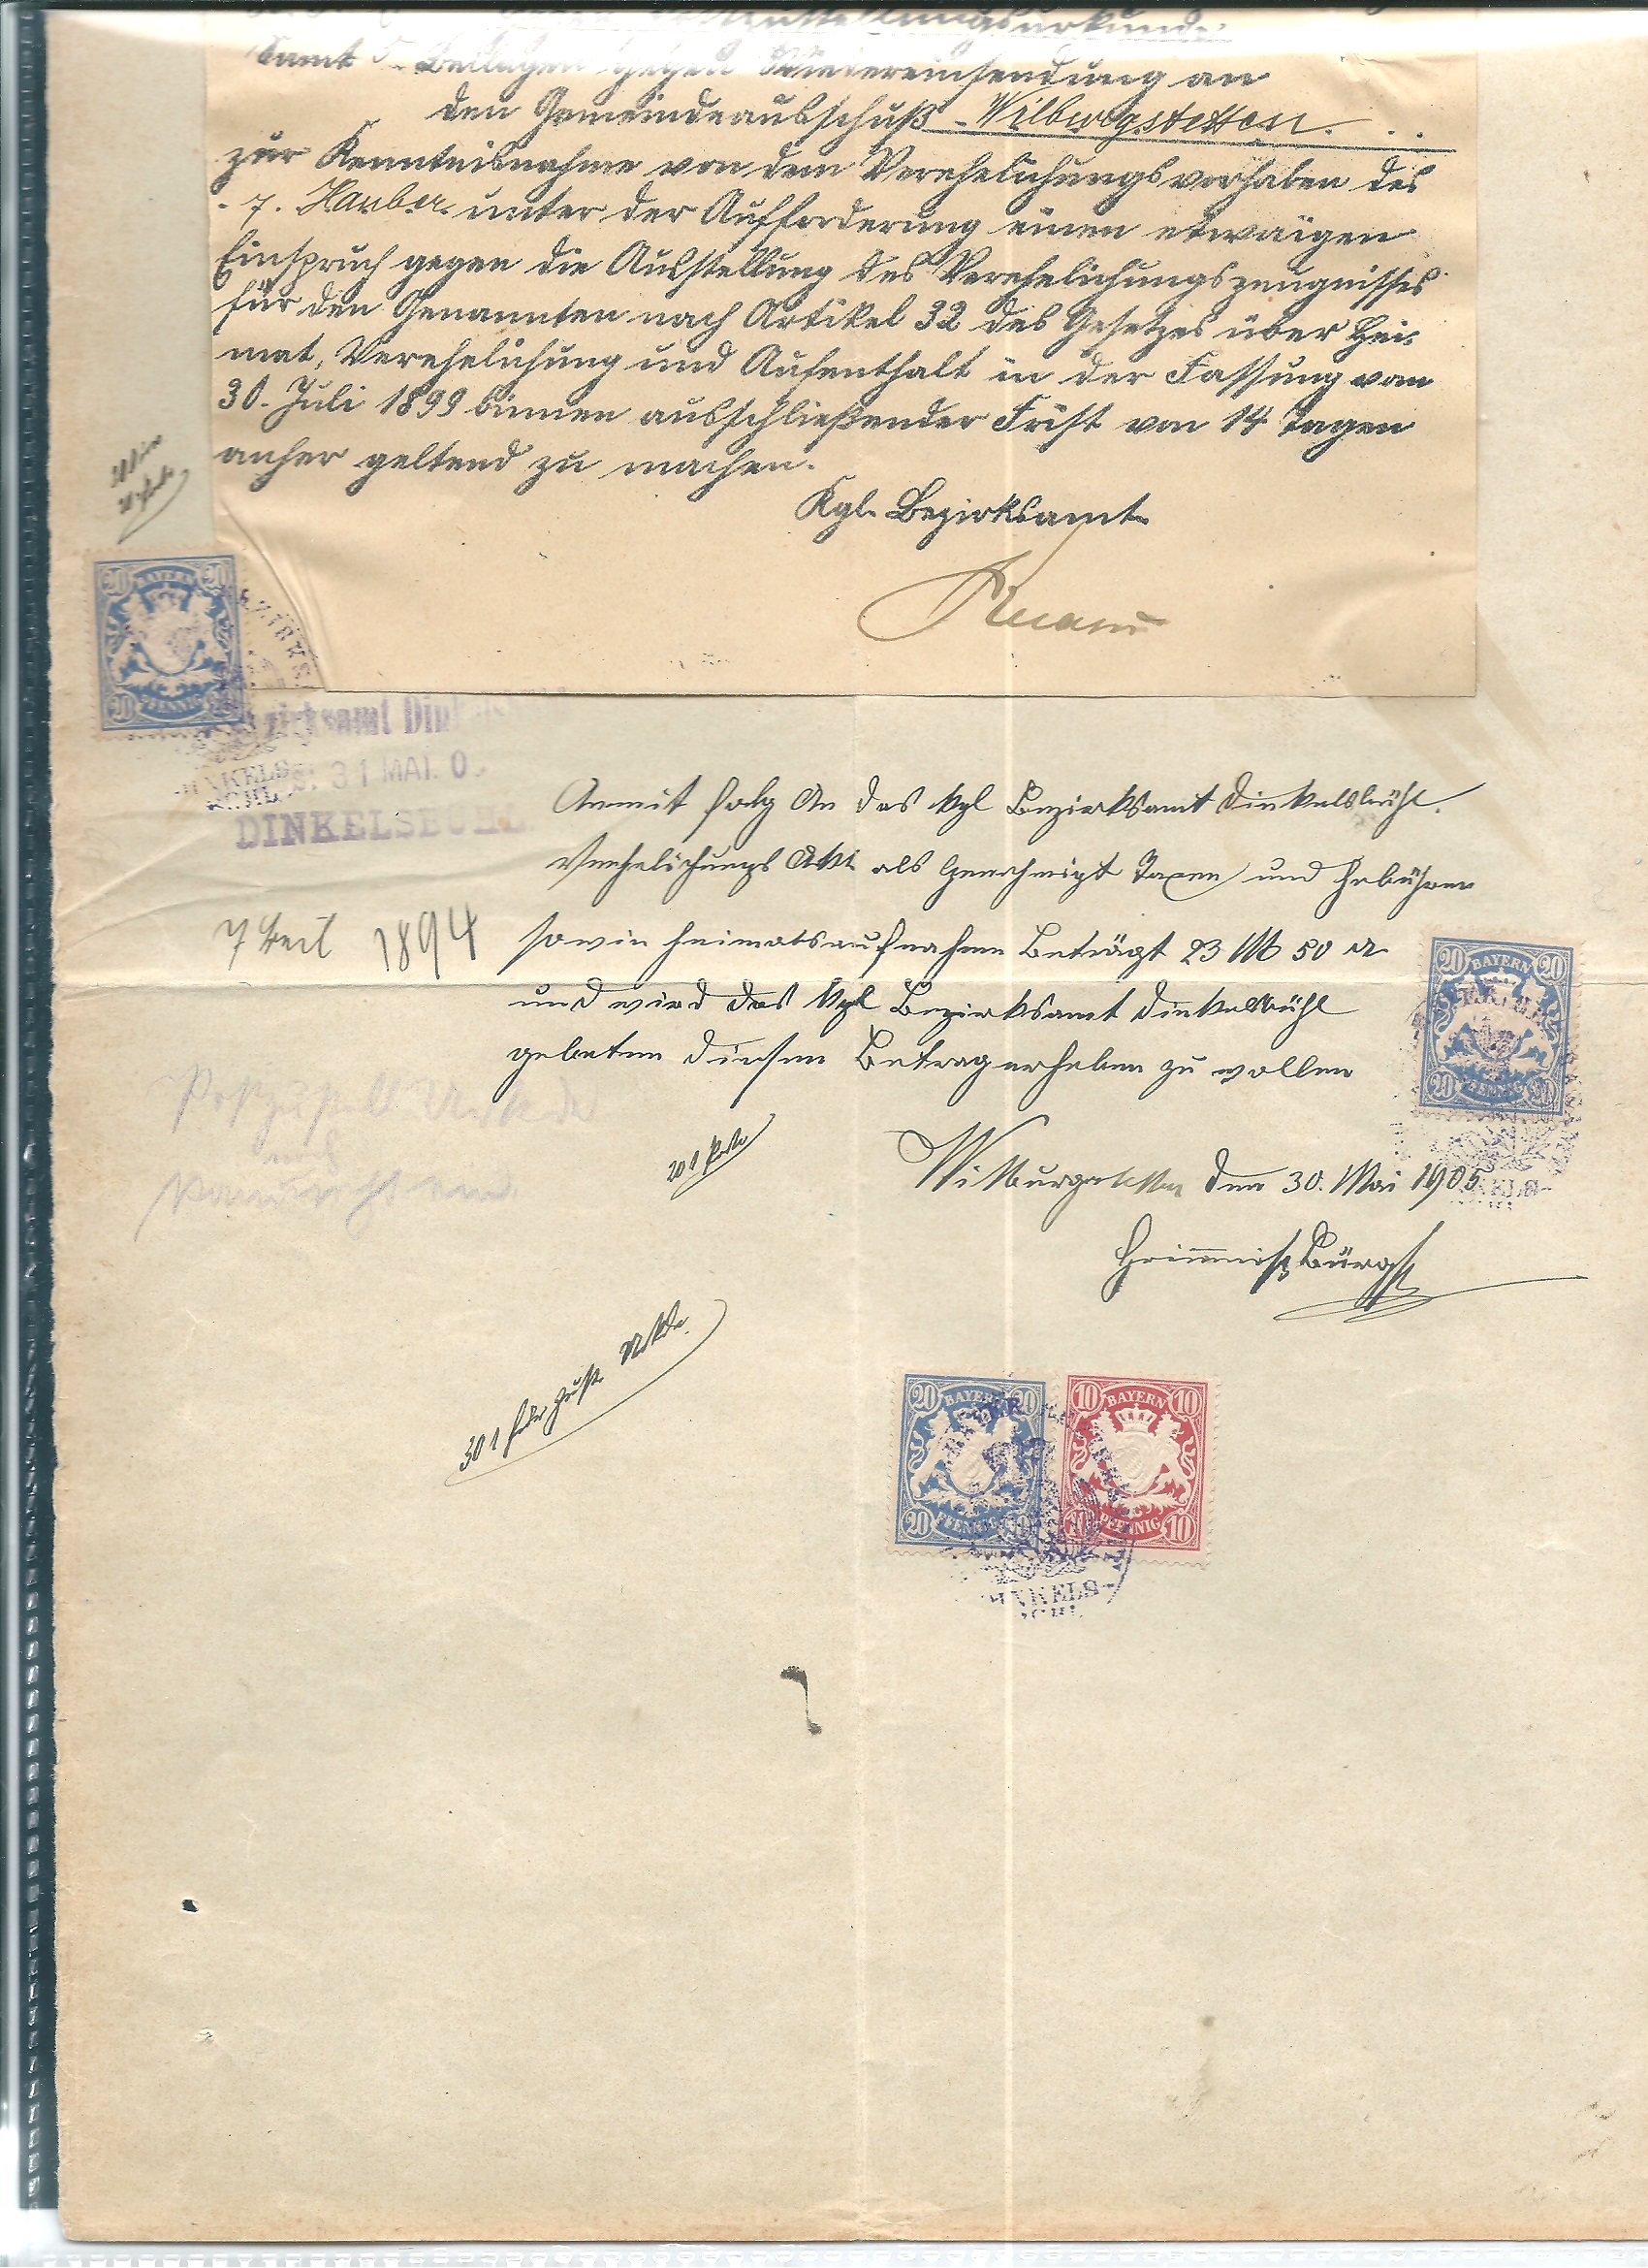 Zustellungsurkunde
samt 5 Beilagen gegen Wiedereinsendung an
den Gemeindeausschuß Wilburgstetten
zur Kenntnisnahme von dem Verehelichungsvorhaben des
Hauber unter der Aufforderung einen etwaigen
Einspruch gegen die Ausstellung des Verehelichungszeugnisses
für den Genannten nach Artikel 32 des Gesetzes über Hei-
mat, Verehelichung und Aufenthalt in der Fassung vom
30. Juli 1899 binnen ausschließender Frist von 14 Tagen
anher geltend zu machen.
Kgl. Bezirksamt
20 BAYERN 20
20 PFENNIG
Bezirksamt Dinkelsbühl
31 MAI. 0
DINKELSBÜHL
Anmit folg An das Kgl Bezirksamt Dinkelsbühl.
Verehelichungs Akt als Genehmigt Taxen und Gebühren
7 1894
sowie Heimatsaufnahme Beträgt 23 M 50 ₰
und wird das Kgl Bezirksamt Dinkelsbühl
gebeten diesen Betrag erheben zu wollen
20 BAYERN 20
20 PFENNIG 20
Wilburgstetten den 30. Mai 1905
Bürgst
20 BAYERN 20
20 PFENNIG 20
10 BAYERN 10
10 PFENNIG 10
DINKELS-
BÜHL